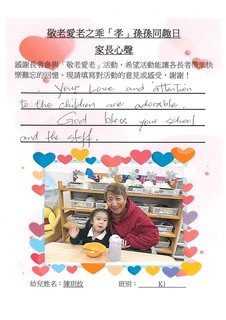 敬老愛老之乖「孝」孫孫同趣日
家長心聲
感謝長者參與「敬老愛老」活動，希望活動能讓各長者帶來快
樂難忘的回憶，現請填寫對活動的意見或感受，謝謝！
Your Love and attention
to the children are adorable.
God bless your school
and the staff.
幼兒姓名：陳玥攸 班別：K1